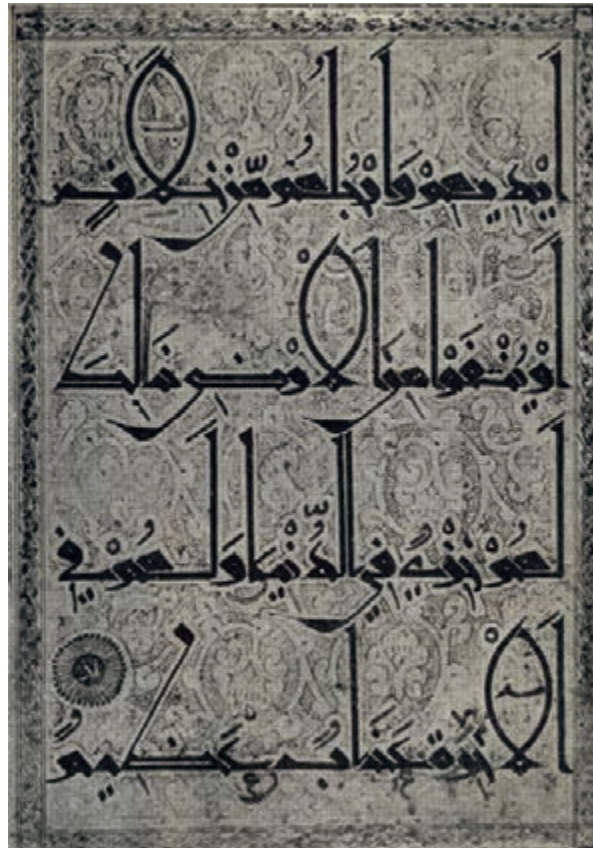 أَيْدِيهِمْ وَأَرْجُلُهُمْ مِّنْ خِلَافٍ
أَوْ يُنْفَوْا مِنَ الْأَرْضِ ذَلِكَ
لَهُمْ خِزْيٌ فِي الدُّنْيَا وَلَهُمْ فِي
الْآخِرَةِ عَذَابٌ عَظِيمٌ